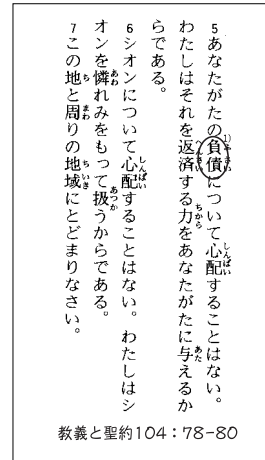 5 あなたがたの負債について心配することはない。
わたしはそれを返済する力をあなたがたに与えるか
らである。
6 シオンについて心配することはない。わたしはシ
オンを憐れみをもって扱うからである。
7 この地と周りの地域にとどまりなさい。
教義と聖約104:78-80